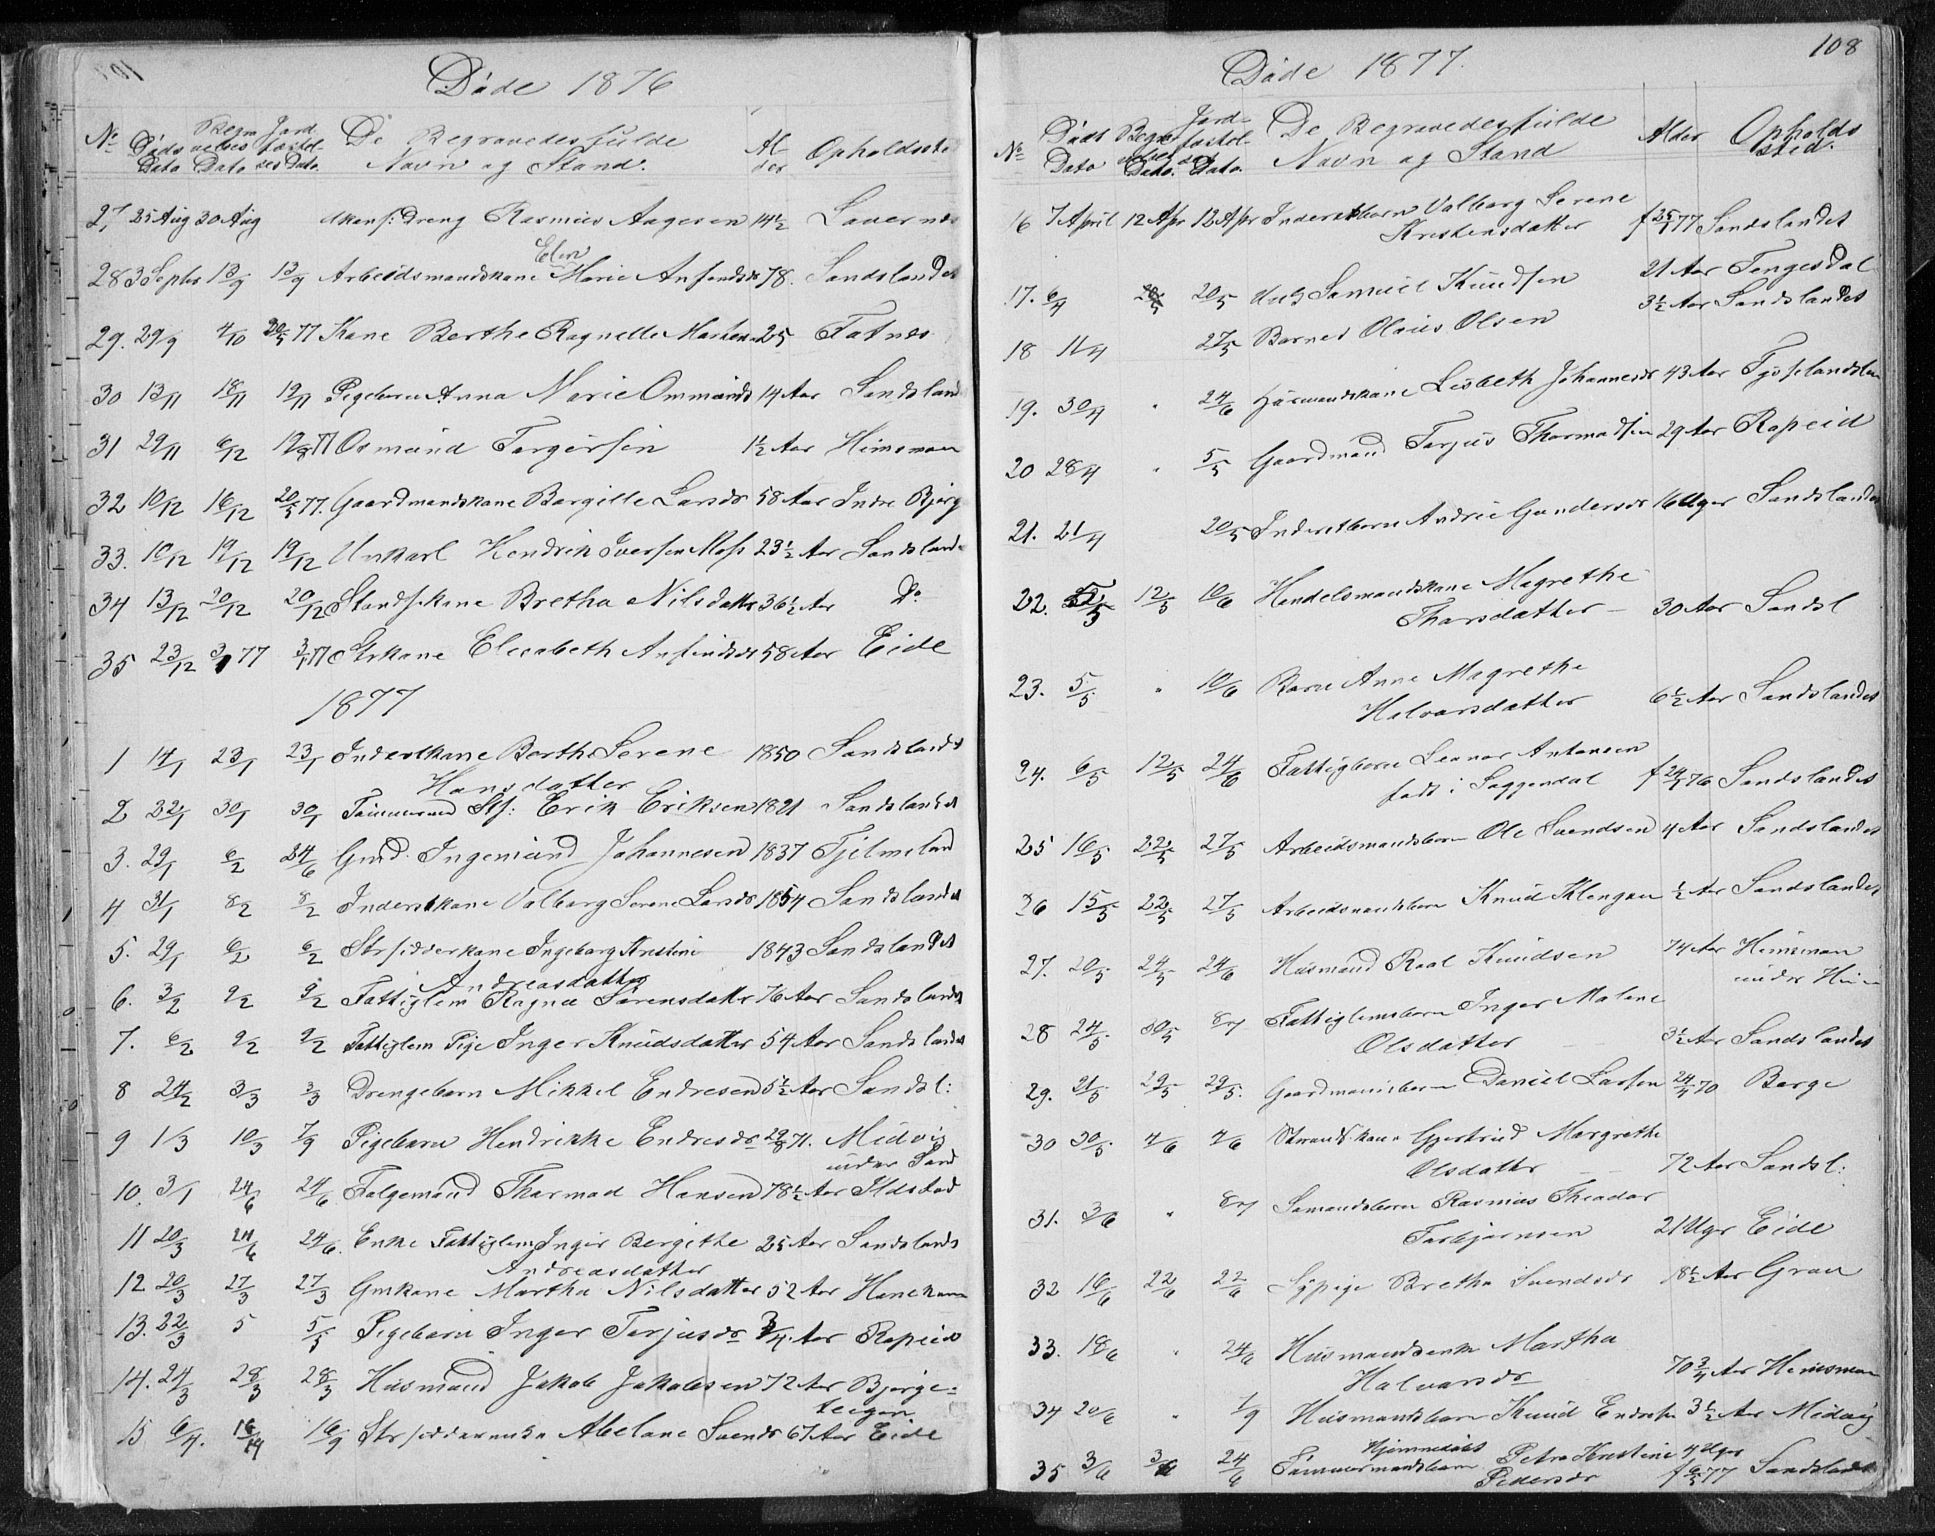 Døde 1876
No Døds Dato Begravelses Dato Jordfæstelses Dato. De Begravedes fulde Navn og Stand. Alder Opholdsste
27, 25 Aug 30 Aug dkonf: Dreng Rasmus Aagesen 14½
28 3 Septbr 13/9 13/9 Arbeidsmandskone Elen Marie Anfindsdr 78. Sandslandet
29. 29/9 4/10 20/5 77 Kone Berthe Ragnille 25 Fatnes
30 13/11 18/11 19/11 Pigebarn Anna Marie Ommundsd 14 Aar Sandsland
31 29/11 6/12 Osmund Torgersen 1½ Aar Heimsmoen
32 10/12 16/12 20/5 77. Gaardmandskone Borgille Larsdr 58 Aar Indre Bjerg
33. 10/12 19/12 19/12 Unkarl Hendrik Iversen Moss 23½ Aar Sandsland
34 13/12 20/12 20/12 Strandskone Bretha Nilsdatter 36½ Aar Do
35 23/12 3/1 77 3/1 77 Strkone Elisabeth Anfindsdr 58 Aar Eide
1877
1 14/1 23/1 23/1 Inderstkone Berthe Serene 1850 Sandslandet
Hansdatter
2 22/1 30/1 30/1 Tømmermd Stf: Erik Eriksen 1821 Sandslandet
3. 29/1 6/2 24/6 Gmd. Ingemund Johannesen 1837 Fjelmeland
4 31/1 8/2 8/2 Inderstkone Valborg Serene Larsdr 1854 Sandslandet
5. 29/1 6/2 6/2 Strsidderkone Ingeborg Kristine 1843 Sandslandet
Andreasdatter
6. 3/2 9/2 9/2 Fattiglem Ragna Sørensdatter 76 Aar Sandslandet
7. 6/2 9/2 9/2 Fattiglem Pige Inger Knudsdatter 54 Aar Sandslandet
8 24/2 3/3 3/3 Drengebarn Mikkel Endresen 5½ Aar Sandsl:
9 1/3 10/3 7/9 Pigebarn Hendrikke Endresdr 71. Midvig
under Sand
10. 3/1 24/6 24/6 Folgemand Thormod Hansen 78½ Aar Ilstad
11 20/3 24/6 24/6. Enke Fattiglem Inger Bergithe 25 Aar Sandslands
Andreasdatter
12 20/3 27/3 27/3 Gmkone Martha Nilsdatter 52 Aar
13. 22/3 5 5/5 Pigebarn Inger Terjusdr 3/4 Aar Ropeid
14. 24/3 28/3 28/3 Husmand Jakob Jakobsen 72 Aar Bjerge=
teigen
15 6/4. 16/4 16/9 Abelone Svendsd 67 Aar Eide
108
Døde 1877.
No Døds Dato Begravelses Dato. Jordfæstelses Dato. De Begravedes fulde Navn og Stand Alder Opholdssted.
16 7 April 12 Apr 12 Apr Inderstbarn Valborg Serene
Kristensdatter f 25/1 77 Sandslandet
17. 6/4 20/5 20/5 Samuel Knudsen 21 Aar Tengesdal
18 11/4 27/5 Barnet Olaus Olsen 3½ Aar Sandslandet
19. 30/4 " 24/6 Husmandskone Lisbeth Johannesdr 43 Aar
20 28/4 " 5/5 Gaardmand Terjus Thormodsen 29 Aar Ropeid
21. 21/4 20/5 Inderstbarn Andrie Gundersdr 16 Uger Sandslandet
22. 5/5 12/5 10/6 Handelsmandskone Magrethe
Thorsdatter 30 Aar Sandsl
23. 5/5 " 10/6 Barn Anne Magrethe
Halvorsdatter 6½ Aar Sandslandet
24. 6/5 12/5 24/6 Fattigbarn Leonor Antonsen
født i Saggendal f 24/1 76 Sandslandet
25 16/5 22/5 27/5 Arbeidsmandsbarn Ole Svendsen 4 Aar Sandslandet
26 15/5 22/5 27/5 Arbeidsmandsbarn Knud ½ Aar Sandslandet
27. 20/5 24/5 24/6 Husmand Roal Knudsen 74 Aar Heimsmoen
under
28 24/5 30/5 8/7 Fattiglemsbarn Inger Malene
Olsdatter 3½ Aar Sandslandet
29. 21/5 29/5 29/5. Gaardmandsbarn Daniel Larsen 24/4 70 Berge
30 30/5. 4/6 4/6 Strandskone Gjertrud Margrethe
Olsdatter 72 Aar Sandsl:
31. 3/6 " 8/7 Sømandsbarn Rasmus Theodor
Torbjørnsen 21 Uger Eide
32 16/6 22/6 22/6 Sypige Bretha Svendsdr 18½ Aar
33. 18/6 " 24/6 Husmandsenke Martha
Halvorsdr 70 3/4 Aar Heimsmoen
34 20/6 " 1/9 Husmandsbarn Knud Endresen 3½ Aar Midvig
35 3/6 3/6 24/6 Tømmermandsbarn Hjemmedøbt Petra Kristine 4 Uger
Pedersdr f 6/5 77 Sandslandet